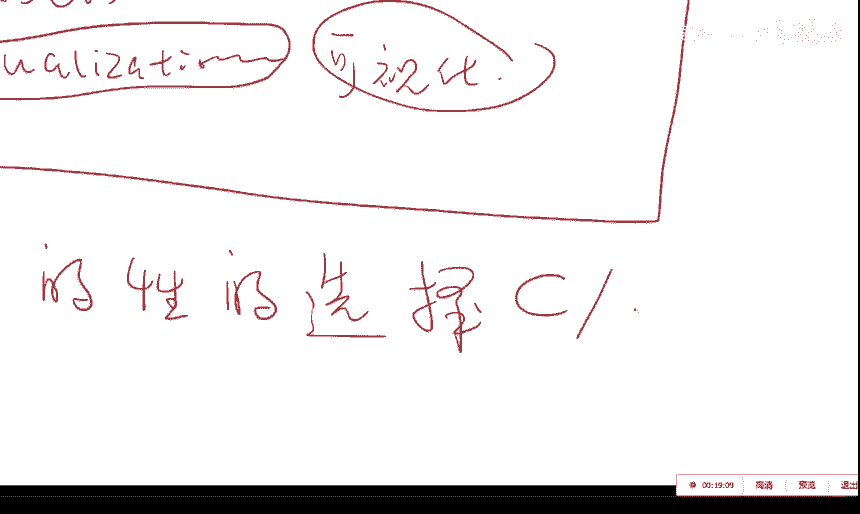 ualization 可视化.
的性的选择 C/.
00:19:09 高清 预览 退出